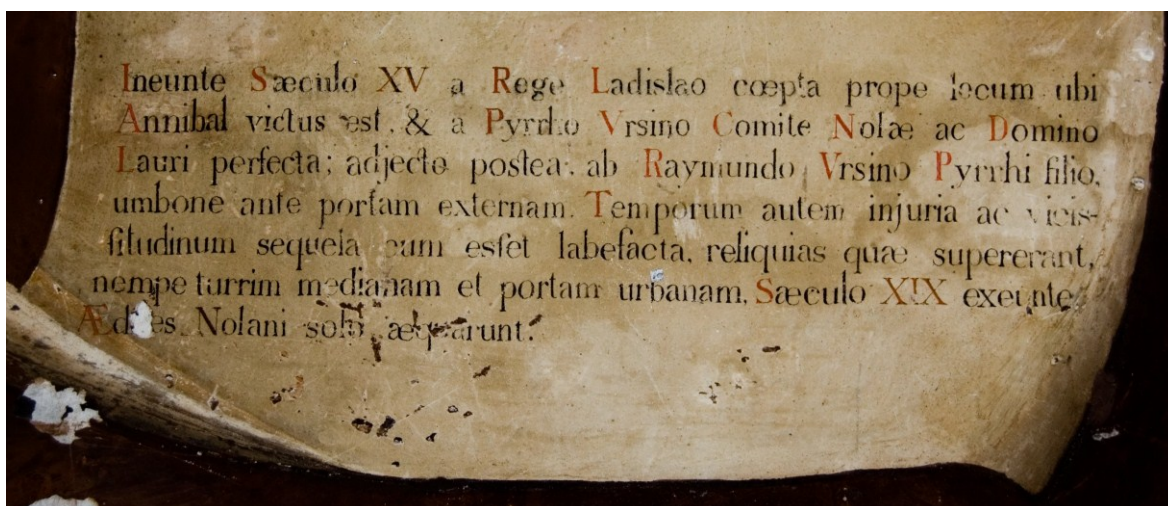 Ineunte Sæculo XV a Rege Ladislao cœpta prope locum ubi
Annibal victus est, & a Pyrrho Vrsino Comite Nolæ ac Domino
Lauri perfecta; adjecto postea, ab Raymundo Vrsino Pyrrhi filio,
umbone ante portam externam. Temporum autem injuria ac vicis-
situdinum sequela cum esset labefacta, reliquias quæ supererant,
nempe turrim medianam et portam urbanam, Sæculo XIX exeunte,
Ædiles Nolani solo æquarunt.